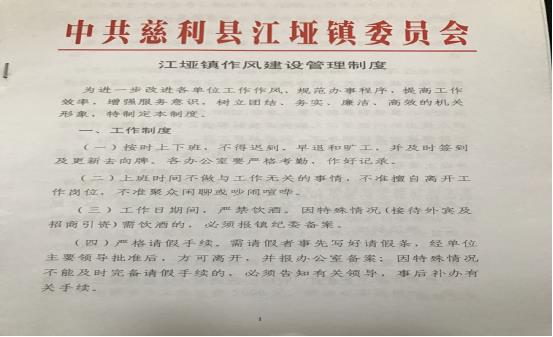 中共慈利县江垭镇委员会
江垭镇作风建设管理制度
为进一步改进各单位工作作风，规范办事程序，提高工作
效率，增强服务意识，树立团结、务实、廉洁、高效的机关
形象，特制定本制度。
一、工作制度
（一）按时上下班，不得迟到、早退和旷工，并及时签到
及更新去向牌。各办公室要严格考勤，作好记录。
（二）上班时间不做与工作无关的事情，不准擅自离开工
作岗位，不准聚众闲聊或吵闹喧哗。
（三）工作日期间，严禁饮酒。因特殊情况(接待外宾及
招商引资)需饮酒的，必须报镇纪委备案。
（四）严格请假手续。需请假者事先写好请假条，经单位
主要领导批准后，方可离开，并报办公室备案；因特殊情况
不能及时完备请假手续的，必须告知有关领导，事后补办有
关手续。
1